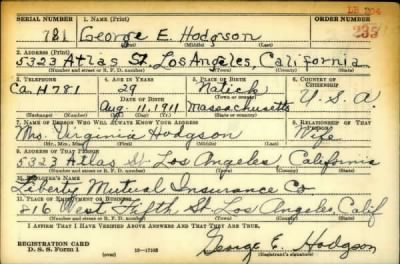 LB 204
SERIAL NUMBER 1. NAME (Print) ORDER NUMBER
781 George E. Hodgson 233
(First) (Middle) (Last)
2. ADDRESS (Print)
5323 Atlas St. Los Angeles, California
(Number and street or R. F. D. number) (Town) (County) (State)
3. TELEPHONE 4. AGE IN YEARS 5. PLACE OF BIRTH 6. COUNTRY OF CITIZENSHIP
Ca. H781 29 Natick
DATE OF BIRTH (Town or county)
Aug. 11, 1911 Massachusetts U. S. A.
(Exchange) (Number) (Mo.) (Day) (Yr.) (State or country)
7. NAME OF PERSON WHO WILL ALWAYS KNOW YOUR ADDRESS 8. RELATIONSHIP OF THAT PERSON
Mrs. Virginia Hodgson Wife
(Mr., Mrs., Miss) (First) (Middle) (Last)
9. ADDRESS OF THAT PERSON
5323 Atlas St. Los Angeles California
(Number and street or R. F. D. number) (Town) (County) (State)
10. EMPLOYER'S NAME
Liberty Mutual Insurance Co
11. PLACE OF EMPLOYMENT OR BUSINESS
816 West Fifth St. Los Angeles, Calif
(Number and street or R. F. D. number) (Town) (County) (State)
I AFFIRM THAT I HAVE VERIFIED ABOVE ANSWERS AND THAT THEY ARE TRUE.
George E. Hodgson
REGISTRATION CARD
D. S. S. Form 1 (over) 16—17105 (Registrant's signature)